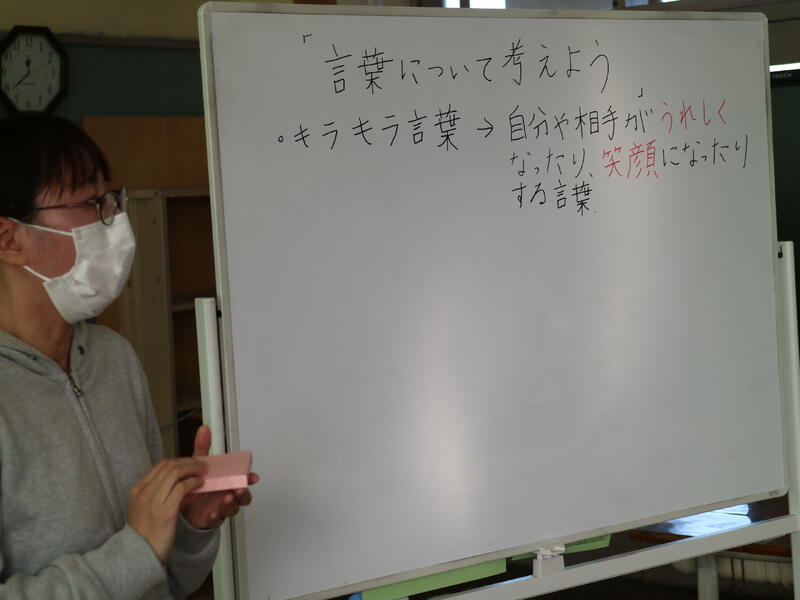 「言葉について考えよう」
・キラキラ言葉→自分や相手がうれしく
なったり、笑顔になったり
する言葉.
TOUCH